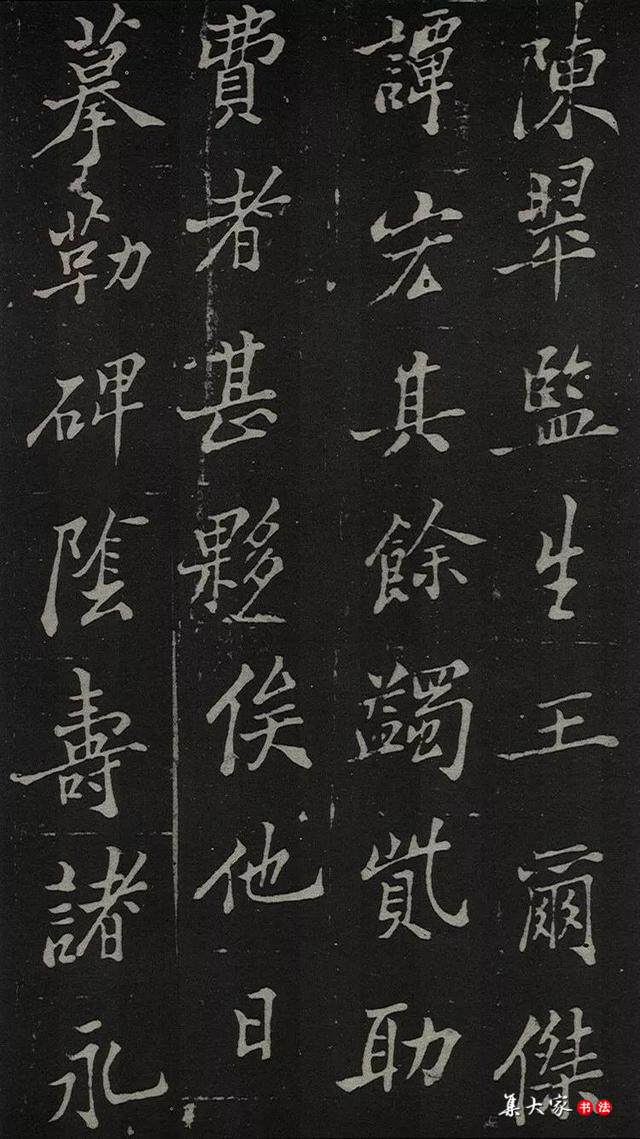 陳監生王爾傑
譚宏其餘蠲貲助
費者甚夥俟他日
摹勒碑陰壽諸永
集大家书法